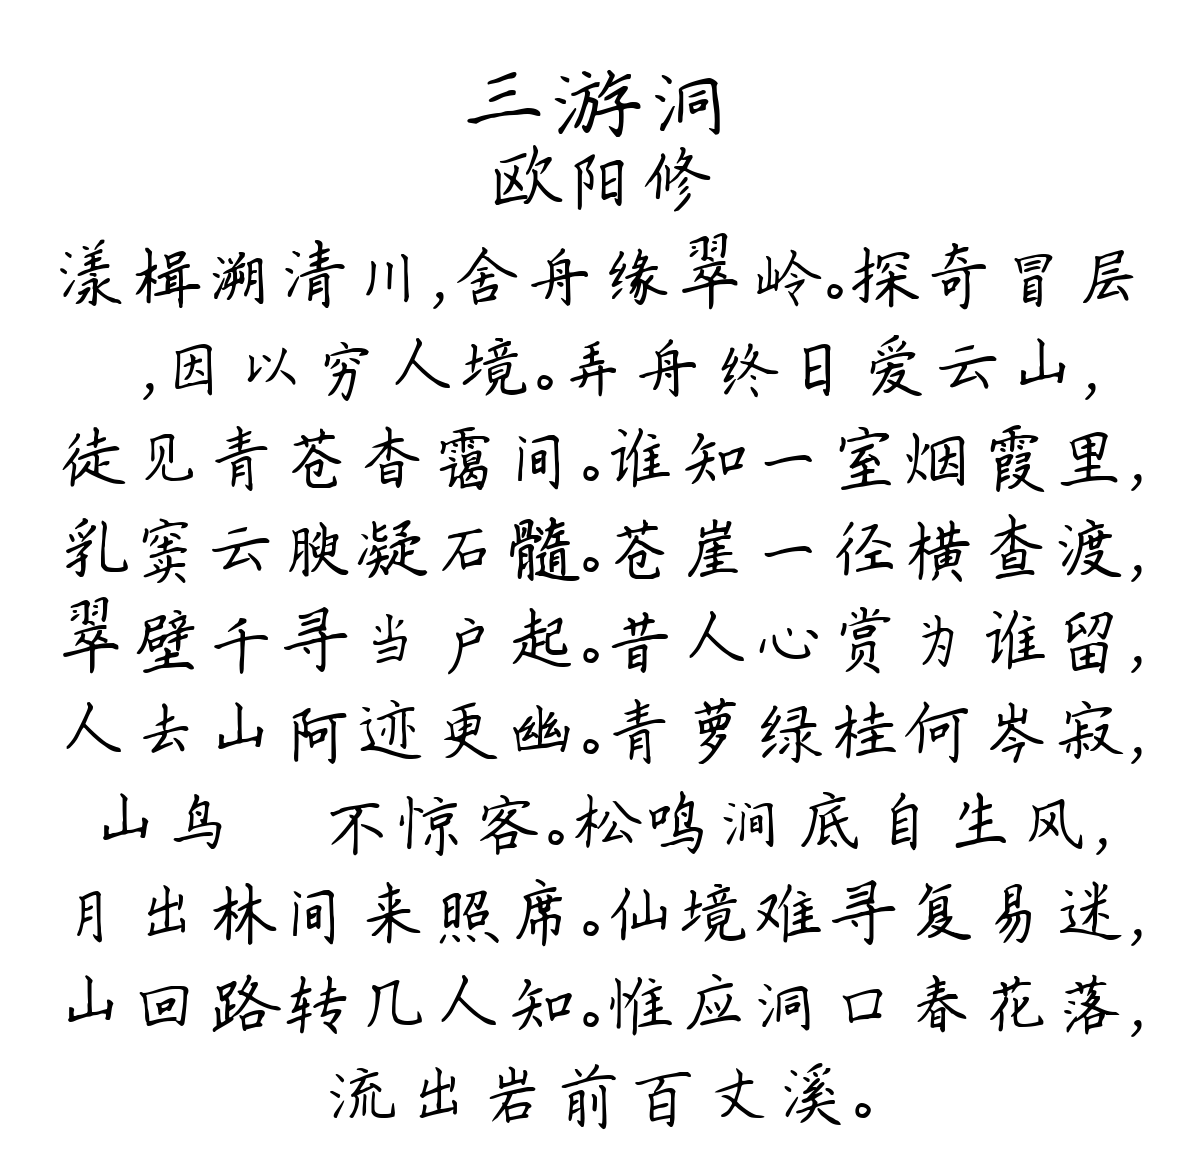 三游洞
欧阳修
漾楫溯清川,舍舟缘翠岭。探奇冒层
,因以穷人境。弄舟终日爱云山,
徒见青苍杳霭间。谁知一室烟霞里,
乳窦云腴凝石髓。苍崖一径横查渡,
翠壁千寻当户起。昔人心赏为谁留,
人去山阿迹更幽。青萝绿桂何岑寂,
山鸟 不惊客。松鸣涧底自生风,
月出林间来照席。仙境难寻复易迷,
山回路转几人知。惟应洞口春花落,
流出岩前百丈溪。